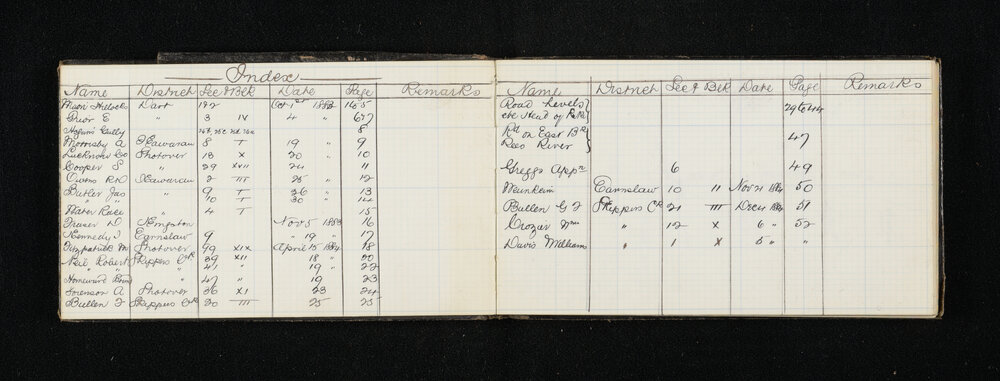 Index
Name District Sec & Blk Date Page Remarks
Dart 1 & 2 Oct 1st 1883 1 to 5
Prior E " 3 IV 4 " 6 & 7
Gully 8
Mornsby A Kawarau 8 I 19 " 9
Lucknow Co Shotover 18 X 20 " 10
Cooper S " 29 XVII 24 11
Owens Kawarau 2 III 25 " 12
Butler Jas " 9 I 26 " 13
" " 10 I 30 " 14
Water Race " 4 I 15
Fraser D Kingston Nov 5 1883 16
Kennedy J Earnslaw 9 " 19 " 17
Fitzpatrick M Shotover 99 XIX April 15 1884 18
Neil Robert Skippers Crk 39 XII 18 " 20
" " " 41 " 19 " 22
Homeward Bound 47 " 19 23
Sorenson A Shotover 36 XI 23 24
Bullen F Skippers Crk 20 III 25 25
Name District Sec & Blk Date Page Remarks
Road Levels
Head of 29 to 44
Rd on East Br
Rees River 47
Greggs Appn 6 49
Weinheim Earnslaw 10 II Nov 21 1884 50
Bullen G F Skippers Ck 21 III Dec 4 1884 51
Crozier Wm " 12 X 6 " 52
Davis William " 1 X 5 " "